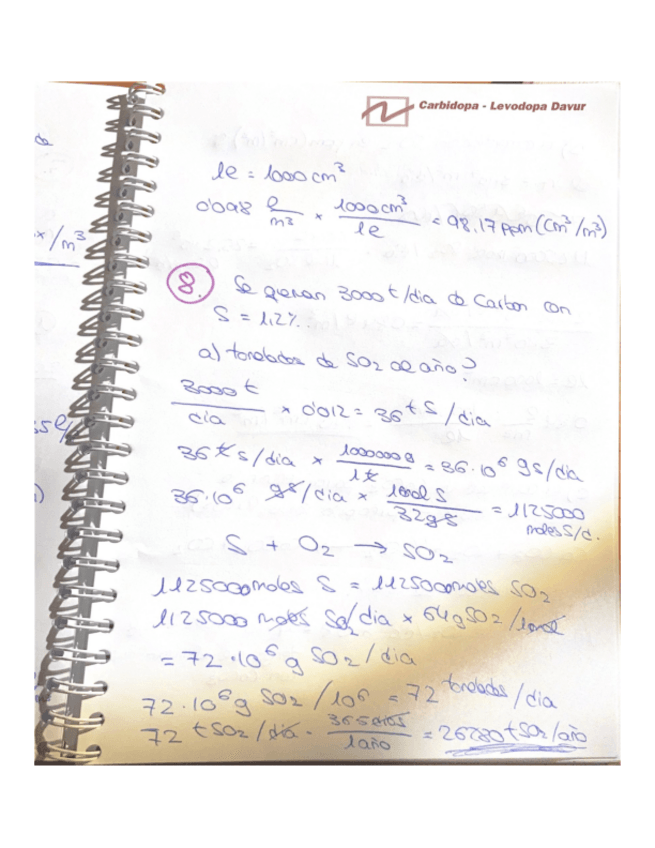 Carbidopa - Levodopa Davur
1l = 1000 cm³
0'098 l/m³ × 1000 cm³/1l = 98,17 ppm (cm³/m³)
x/m³
8. Se queman 3000 t/dia de Carbon con
S = 1,2%.
a) toneladas de SO₂ al año?
3000 t/dia × 0'012 = 36 t S/dia
36 t S/dia × 1000000 g/1 t = 36·10⁶ g S/dia
36·10⁶ g S/dia × 1 mol S/32 g S = 1125000
moles S/d.
S + O₂ → SO₂
1125000 moles S = 1125000 moles SO₂
1125000 moles SO₂/dia × 64 g SO₂/1 mol
= 72·10⁶ g SO₂/dia
72·10⁶ g SO₂/10⁶ = 72 toneladas/dia
72 t SO₂/dia · 365 dias/1 año = 26280 t SO₂/año